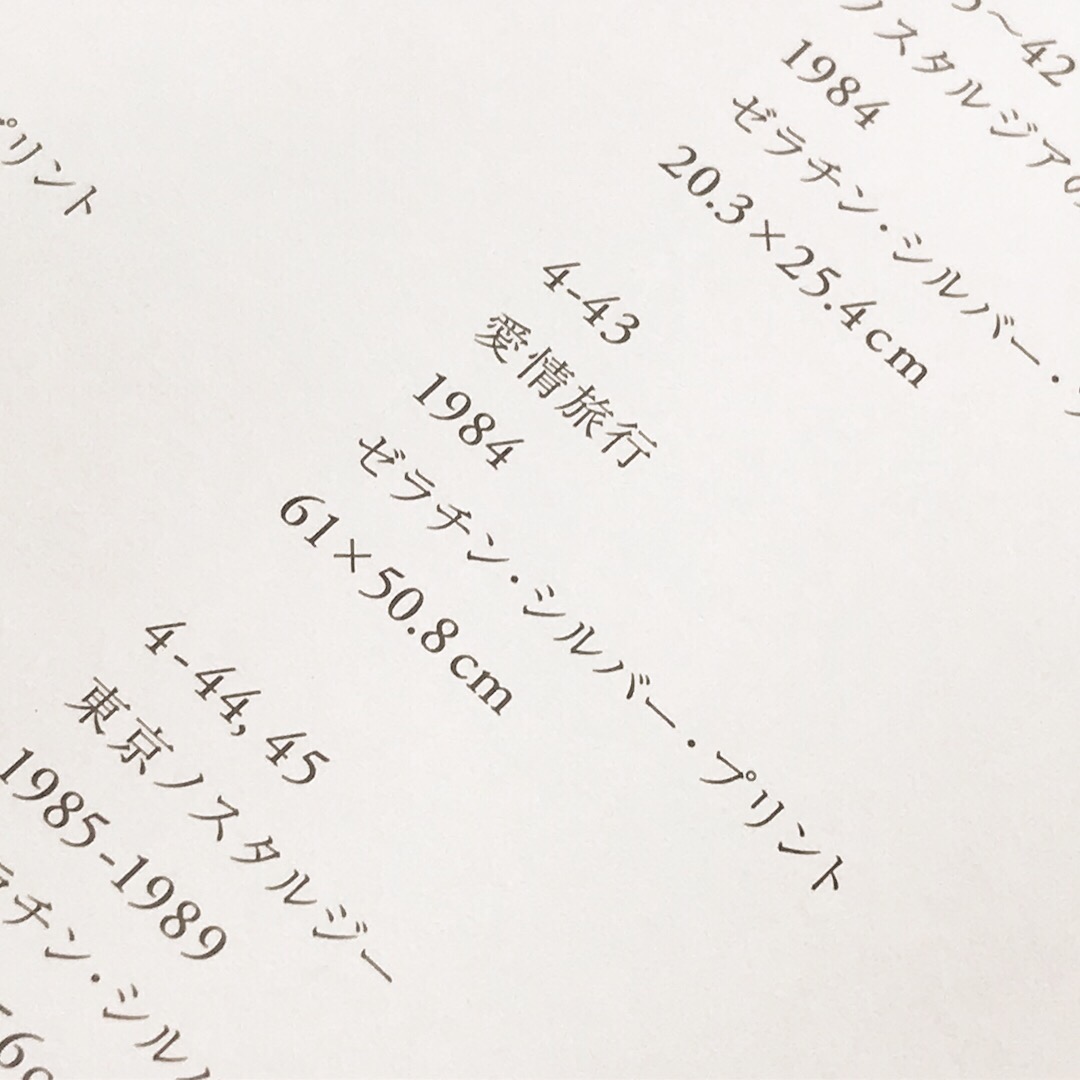 プリント
~42
ノスタルジアの
1984
ゼラチン・シルバー・プ
20.3×25.4cm
4-43
愛情旅行
1984
ゼラチン・シルバー・プリント
61×50.8cm
4-44, 45
東京ノスタルジー
1985-1989
ラチン・シル